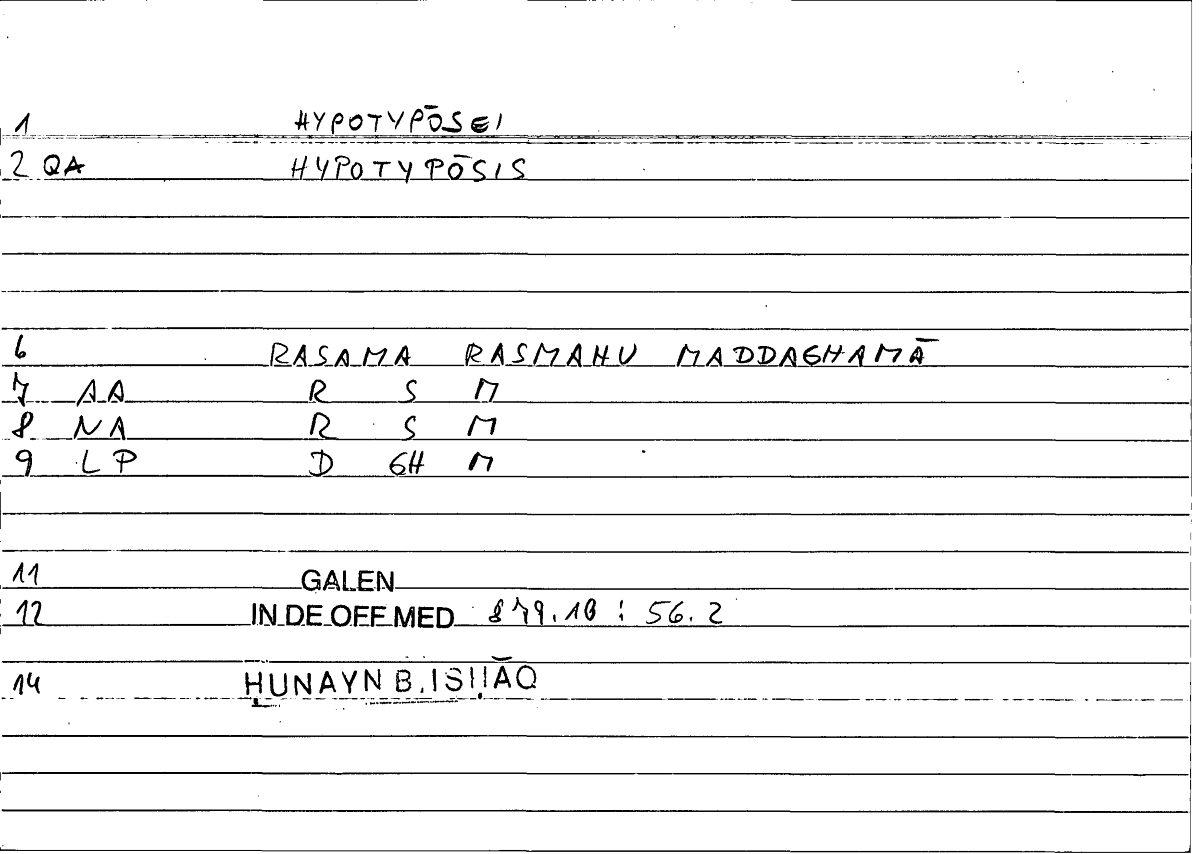 1 HYPOTYPŌSEI
2 QA HYPOTYPŌSIS
6 RASAMA RASMAHU MADDAGHAMĀ
7 AA R S M
8 NA R S M
9 LP D GH M
11 GALEN
12 IN DE OFF MED 879.10 : 56.2
14 ḤUNAYN B. ISḤĀQ